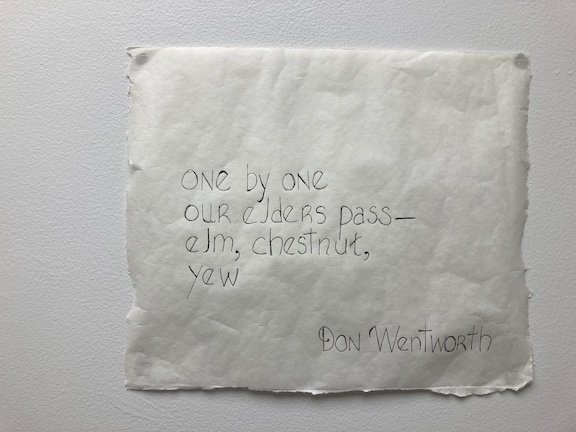 one by one
our elders pass—
elm, chestnut,
yew
Don Wentworth